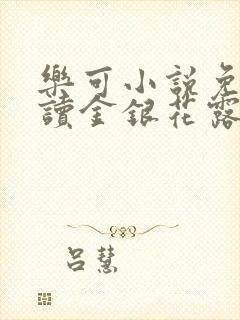 樂可小說免
讀金銀花露
呂慧